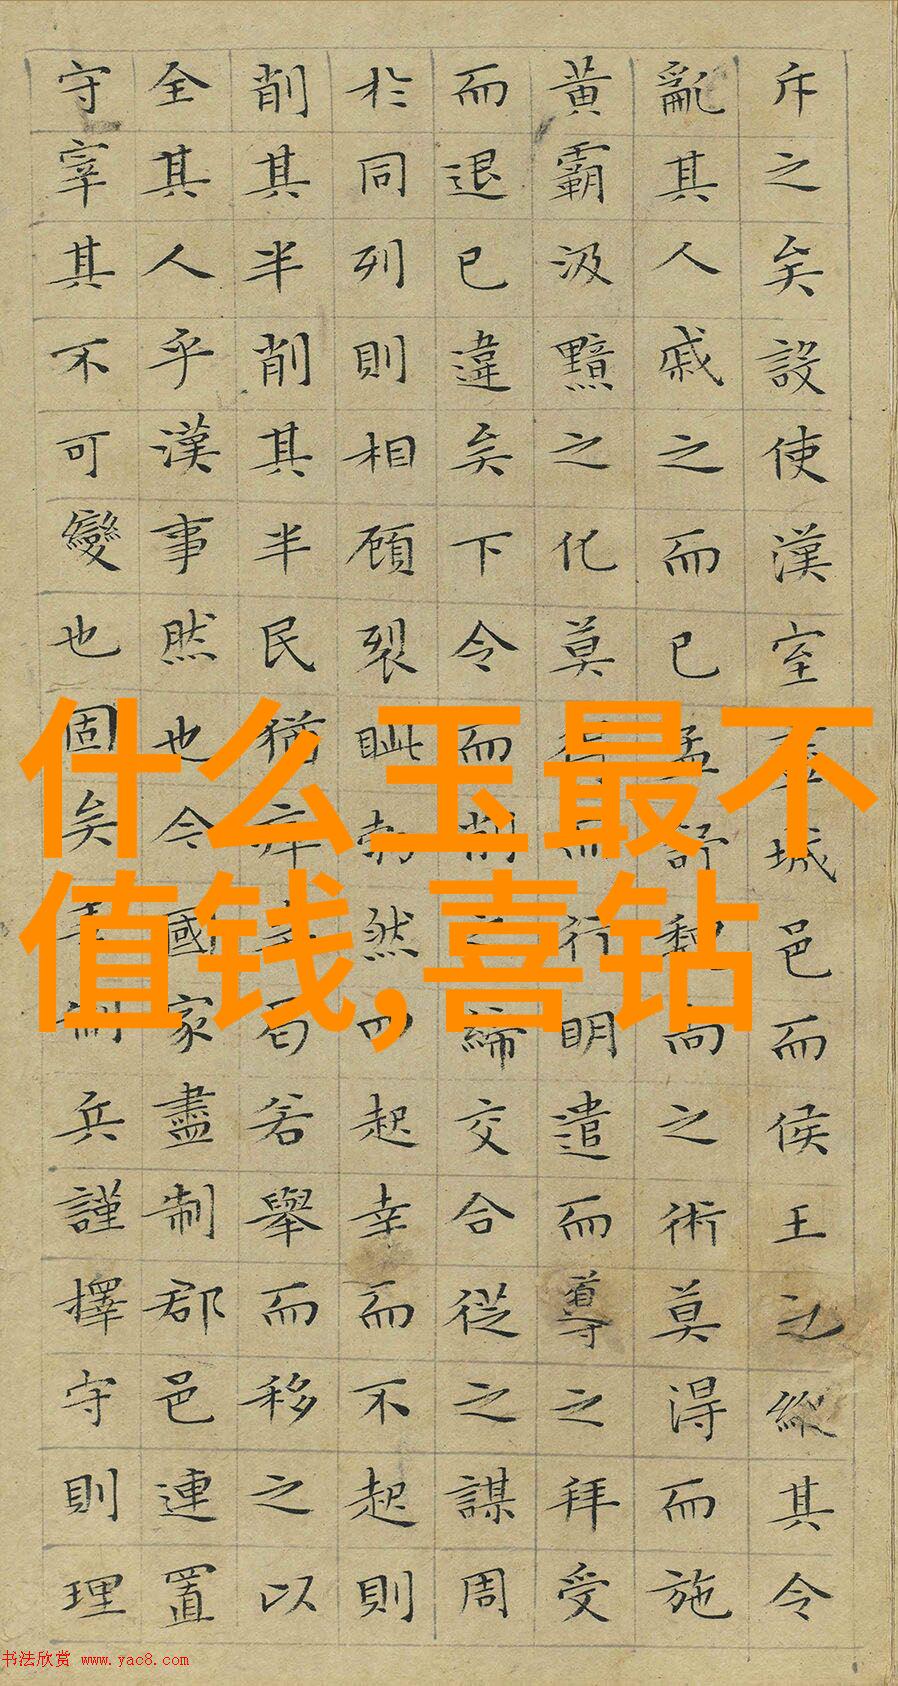 斥之矣設使漢室城邑而侯王之縱其令
亂其人戚之而已孟舒魏尚之術莫得而施
黃霸汲黯之化莫而行明遣而導之拜受
而退已違矣下令而削之締交合從之謀周
於同列則相顧裂眦勃然起幸而不起則
削其半削其半民猶瘁若舉而移之以
全其人乎漢事然也今國家盡制郡邑連置
守宰其不可變也固矣制兵謹擇守則理
什么玉最不
值钱,喜钻
书法欣赏 www.yac8.com